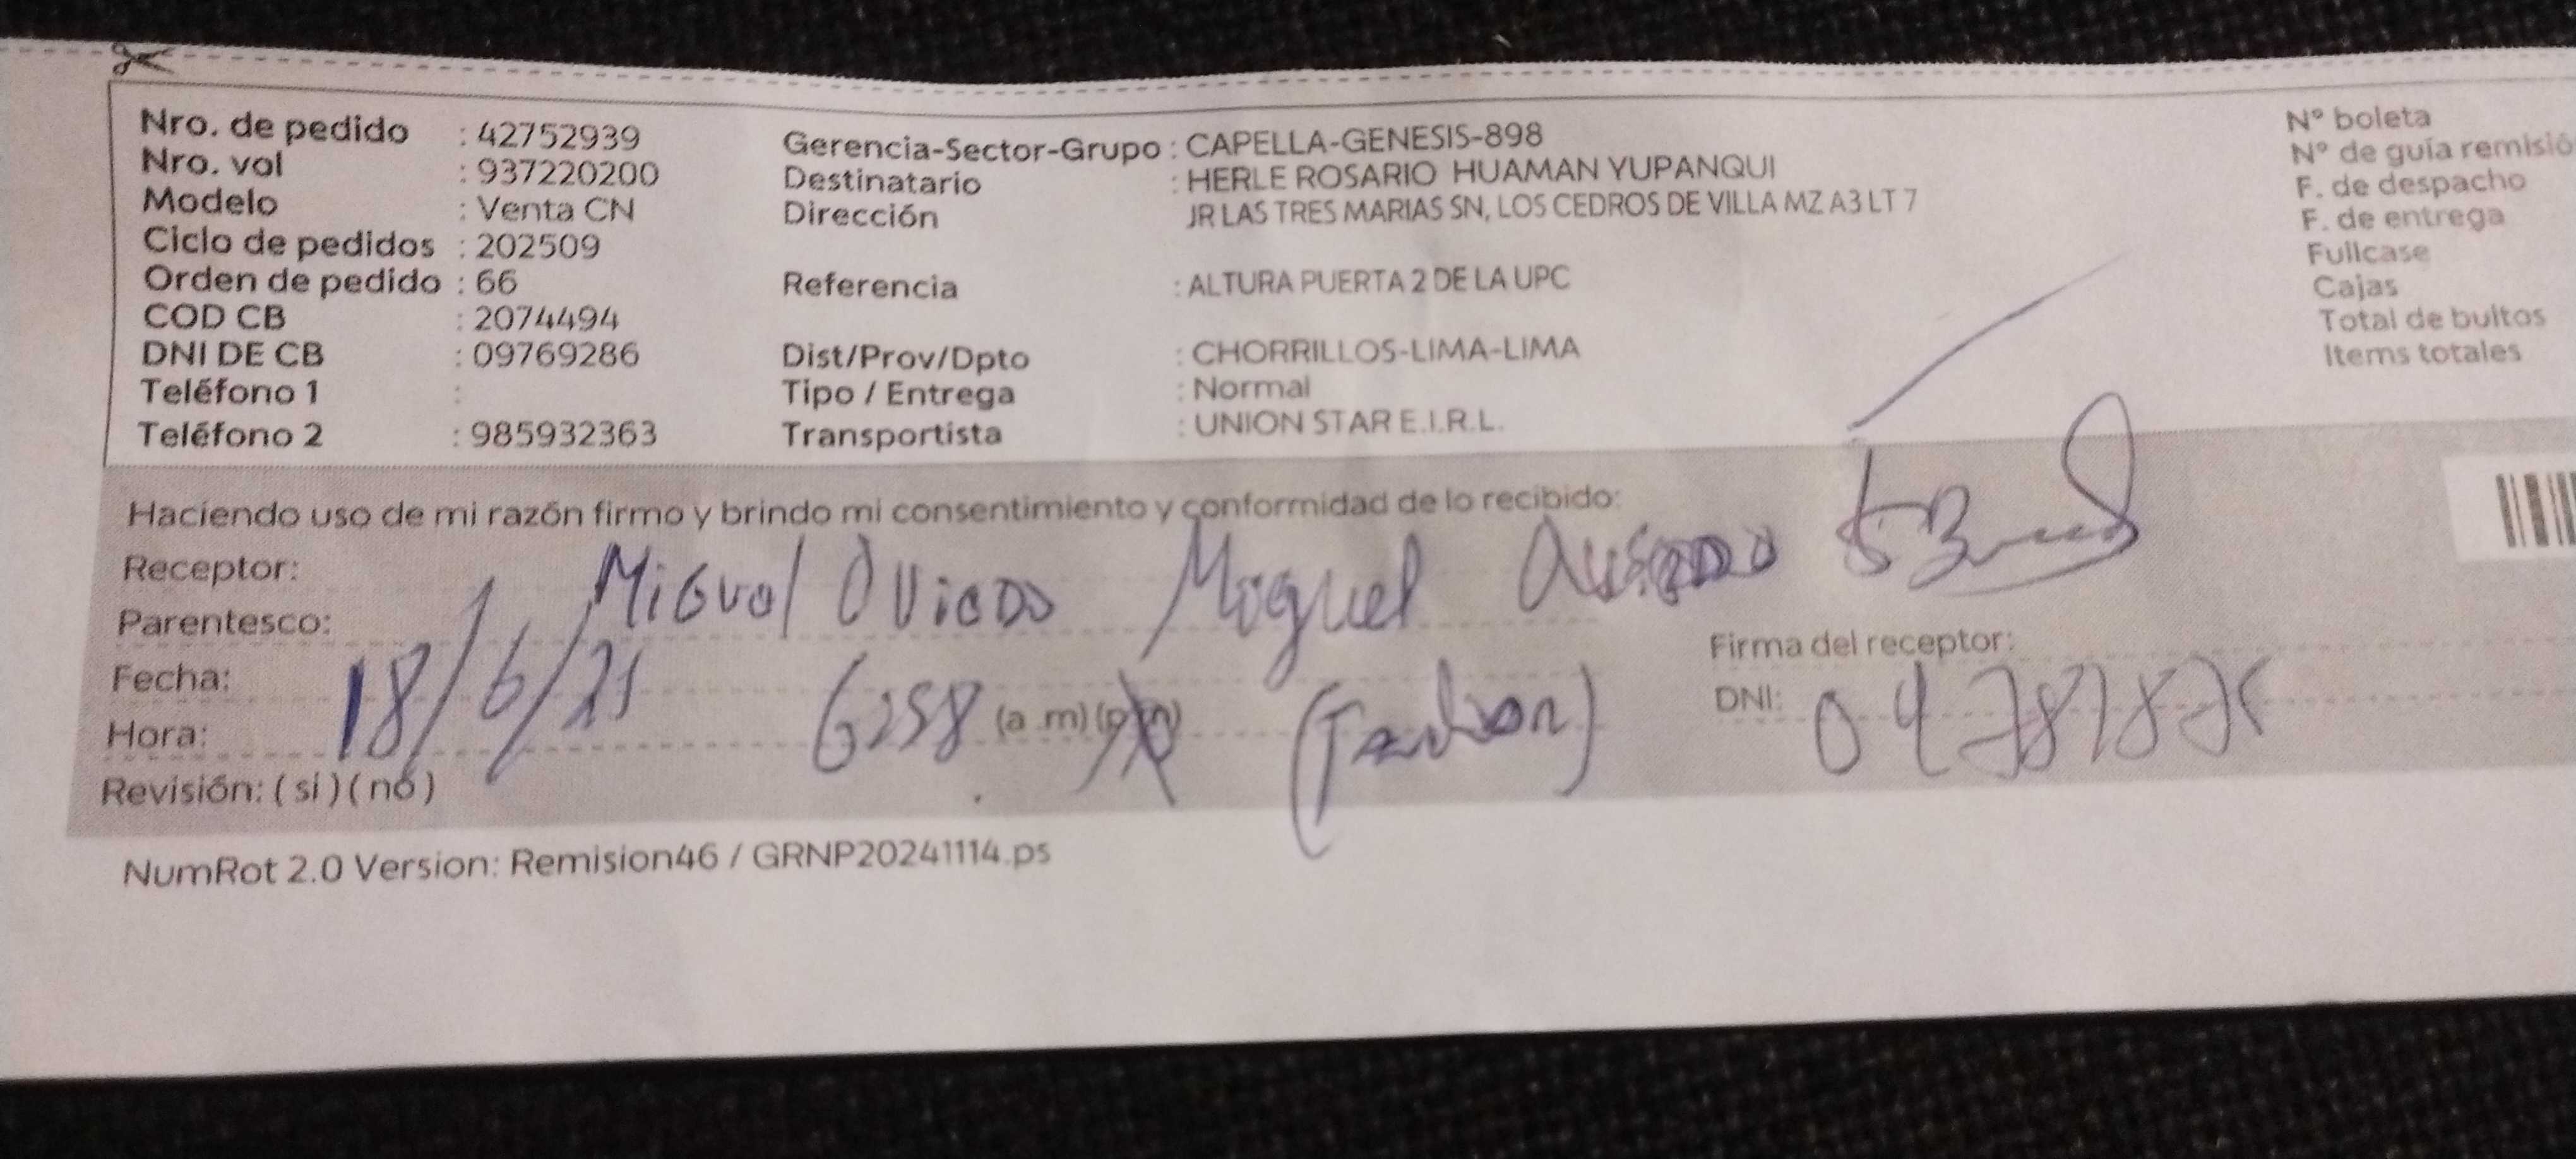 Nro. de pedido : 42752939
Nro. vol : 937220200
Modelo : Venta CN
Ciclo de pedidos : 202509
Orden de pedido : 66
COD CB : 2074494
DNI DE CB : 09769286
Teléfono 1 :
Teléfono 2 : 985932363
Gerencia-Sector-Grupo : CAPELLA-GENESIS-898
Destinatario : HERLE ROSARIO HUAMAN YUPANQUI
Dirección JR LAS TRES MARIAS SN, LOS CEDROS DE VILLA MZ A3 LT 7
Referencia : ALTURA PUERTA 2 DE LA UPC
Dist/Prov/Dpto : CHORRILLOS-LIMA-LIMA
Tipo / Entrega : Normal
Transportista : UNION STAR E.I.R.L.
N° boleta
N° de guía remisió
F. de despacho
F. de entrega
Fullcase
Cajas
Total de bultos
Items totales
Haciendo uso de mi razón firmo y brindo mi consentimiento y conformidad de lo recibido:
Receptor: Miguel Oviedo Miguel
Parentesco:
Fecha: 18/6/25
Hora: 6:58 (a .m) (p.m)
Firma del receptor:
DNI:
Revisión: ( si ) ( no )
NumRot 2.0 Version: Remision46 / GRNP20241114.ps